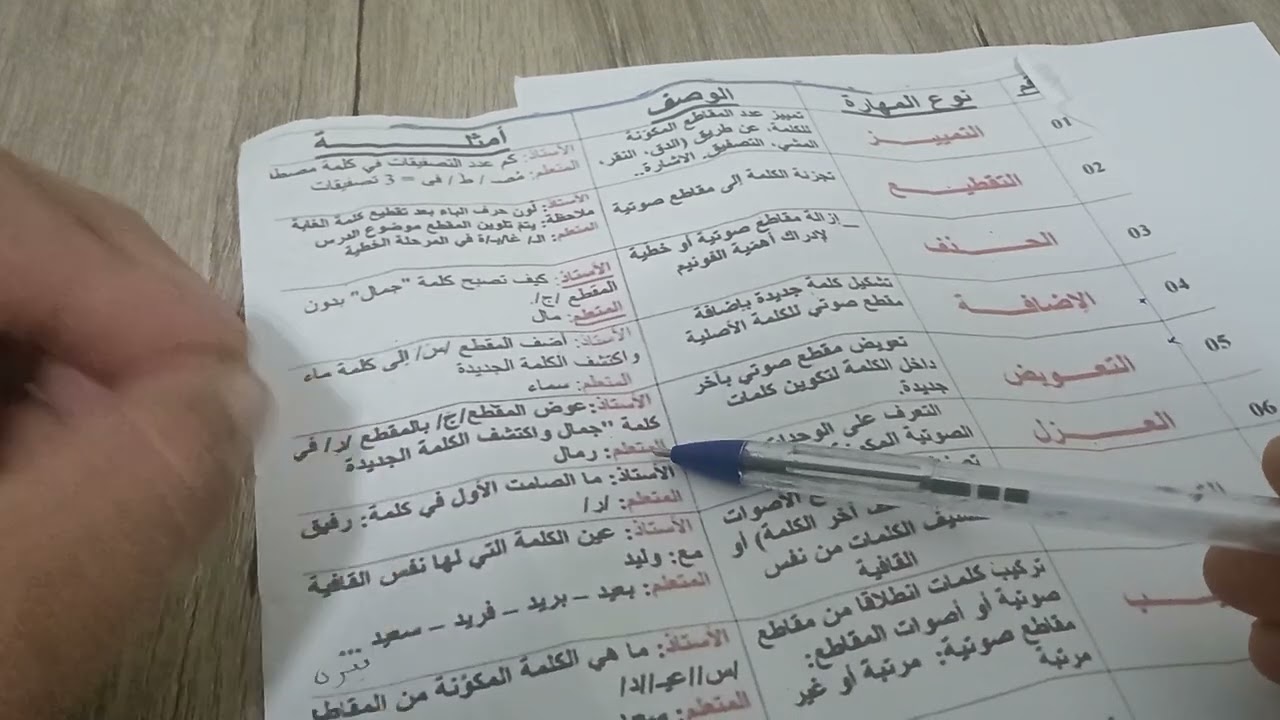 نوع المهارة
الوصف
أمثلـــــــــة
01
التمييـــــز
تمييز عدد المقاطع المكوّنة
للكلمة، عن طريق (الدق، النقر،
المشي، التصفيق، الاشارة..
الأستاذ: كم عدد التصفيقات في كلمة مصط
المتعلم: / ط / فى = 3 تصفيقات
02
التقطيـــــع
تجزئة الكلمة إلى مقاطع صوتية
الأستاذ: لون حرف الباء بعد تقطيع كلمة الغابة
ملاحظة: يتم تلوين المقطع موضوع الدرس
المتعلم: الـ/ غا/بـ/ة في المرحلة الخطية
03
الحـــــذف
إزالة مقاطع صوتية أو خطية
لإدراك أهمية الفونيم
الأستاذ: كيف تصبح كلمة "جمال" بدون
المقطع /ج/.
المتعلم: مال
04
الإضافـــــة
تشكيل كلمة جديدة بإضافة
مقطع صوتي للكلمة الأصلية
الأستاذ: أضف المقطع /س/ إلى كلمة ماء
واكتشف الكلمة الجديدة
المتعلم: سماء
05
التعـــويض
تعويض مقطع صوتي بآخر
داخل الكلمة لتكوين كلمات
جديدة.
الأستاذ: عوض المقطع/ج/ بالمقطع /ر/ في
كلمة "جمال واكتشف الكلمة الجديدة
المتعلم: رمال
06
العـــــزل
التعرف على الوحدات
الصوتية
الأستاذ: ما الصامت الأول في كلمة: رفيق
المتعلم: /ر/
الأصوات
آخر الكلمة) أو
الكلمات من نفس
القافية
الأستاذ: عين الكلمة التي لها نفس القافية
مع: وليد
المتعلم: بعيد – بريد – فريد – سعيد ...
تركيب كلمات انطلاقا من مقاطع
صوتية أو أصوات المقاطع:
مقاطع صوتية: مرتبة أو غير
مرتبة
الأستاذ: ما هي الكلمة المكوّنة من المقاطع
/س//عيـ//د/
المتعلم: